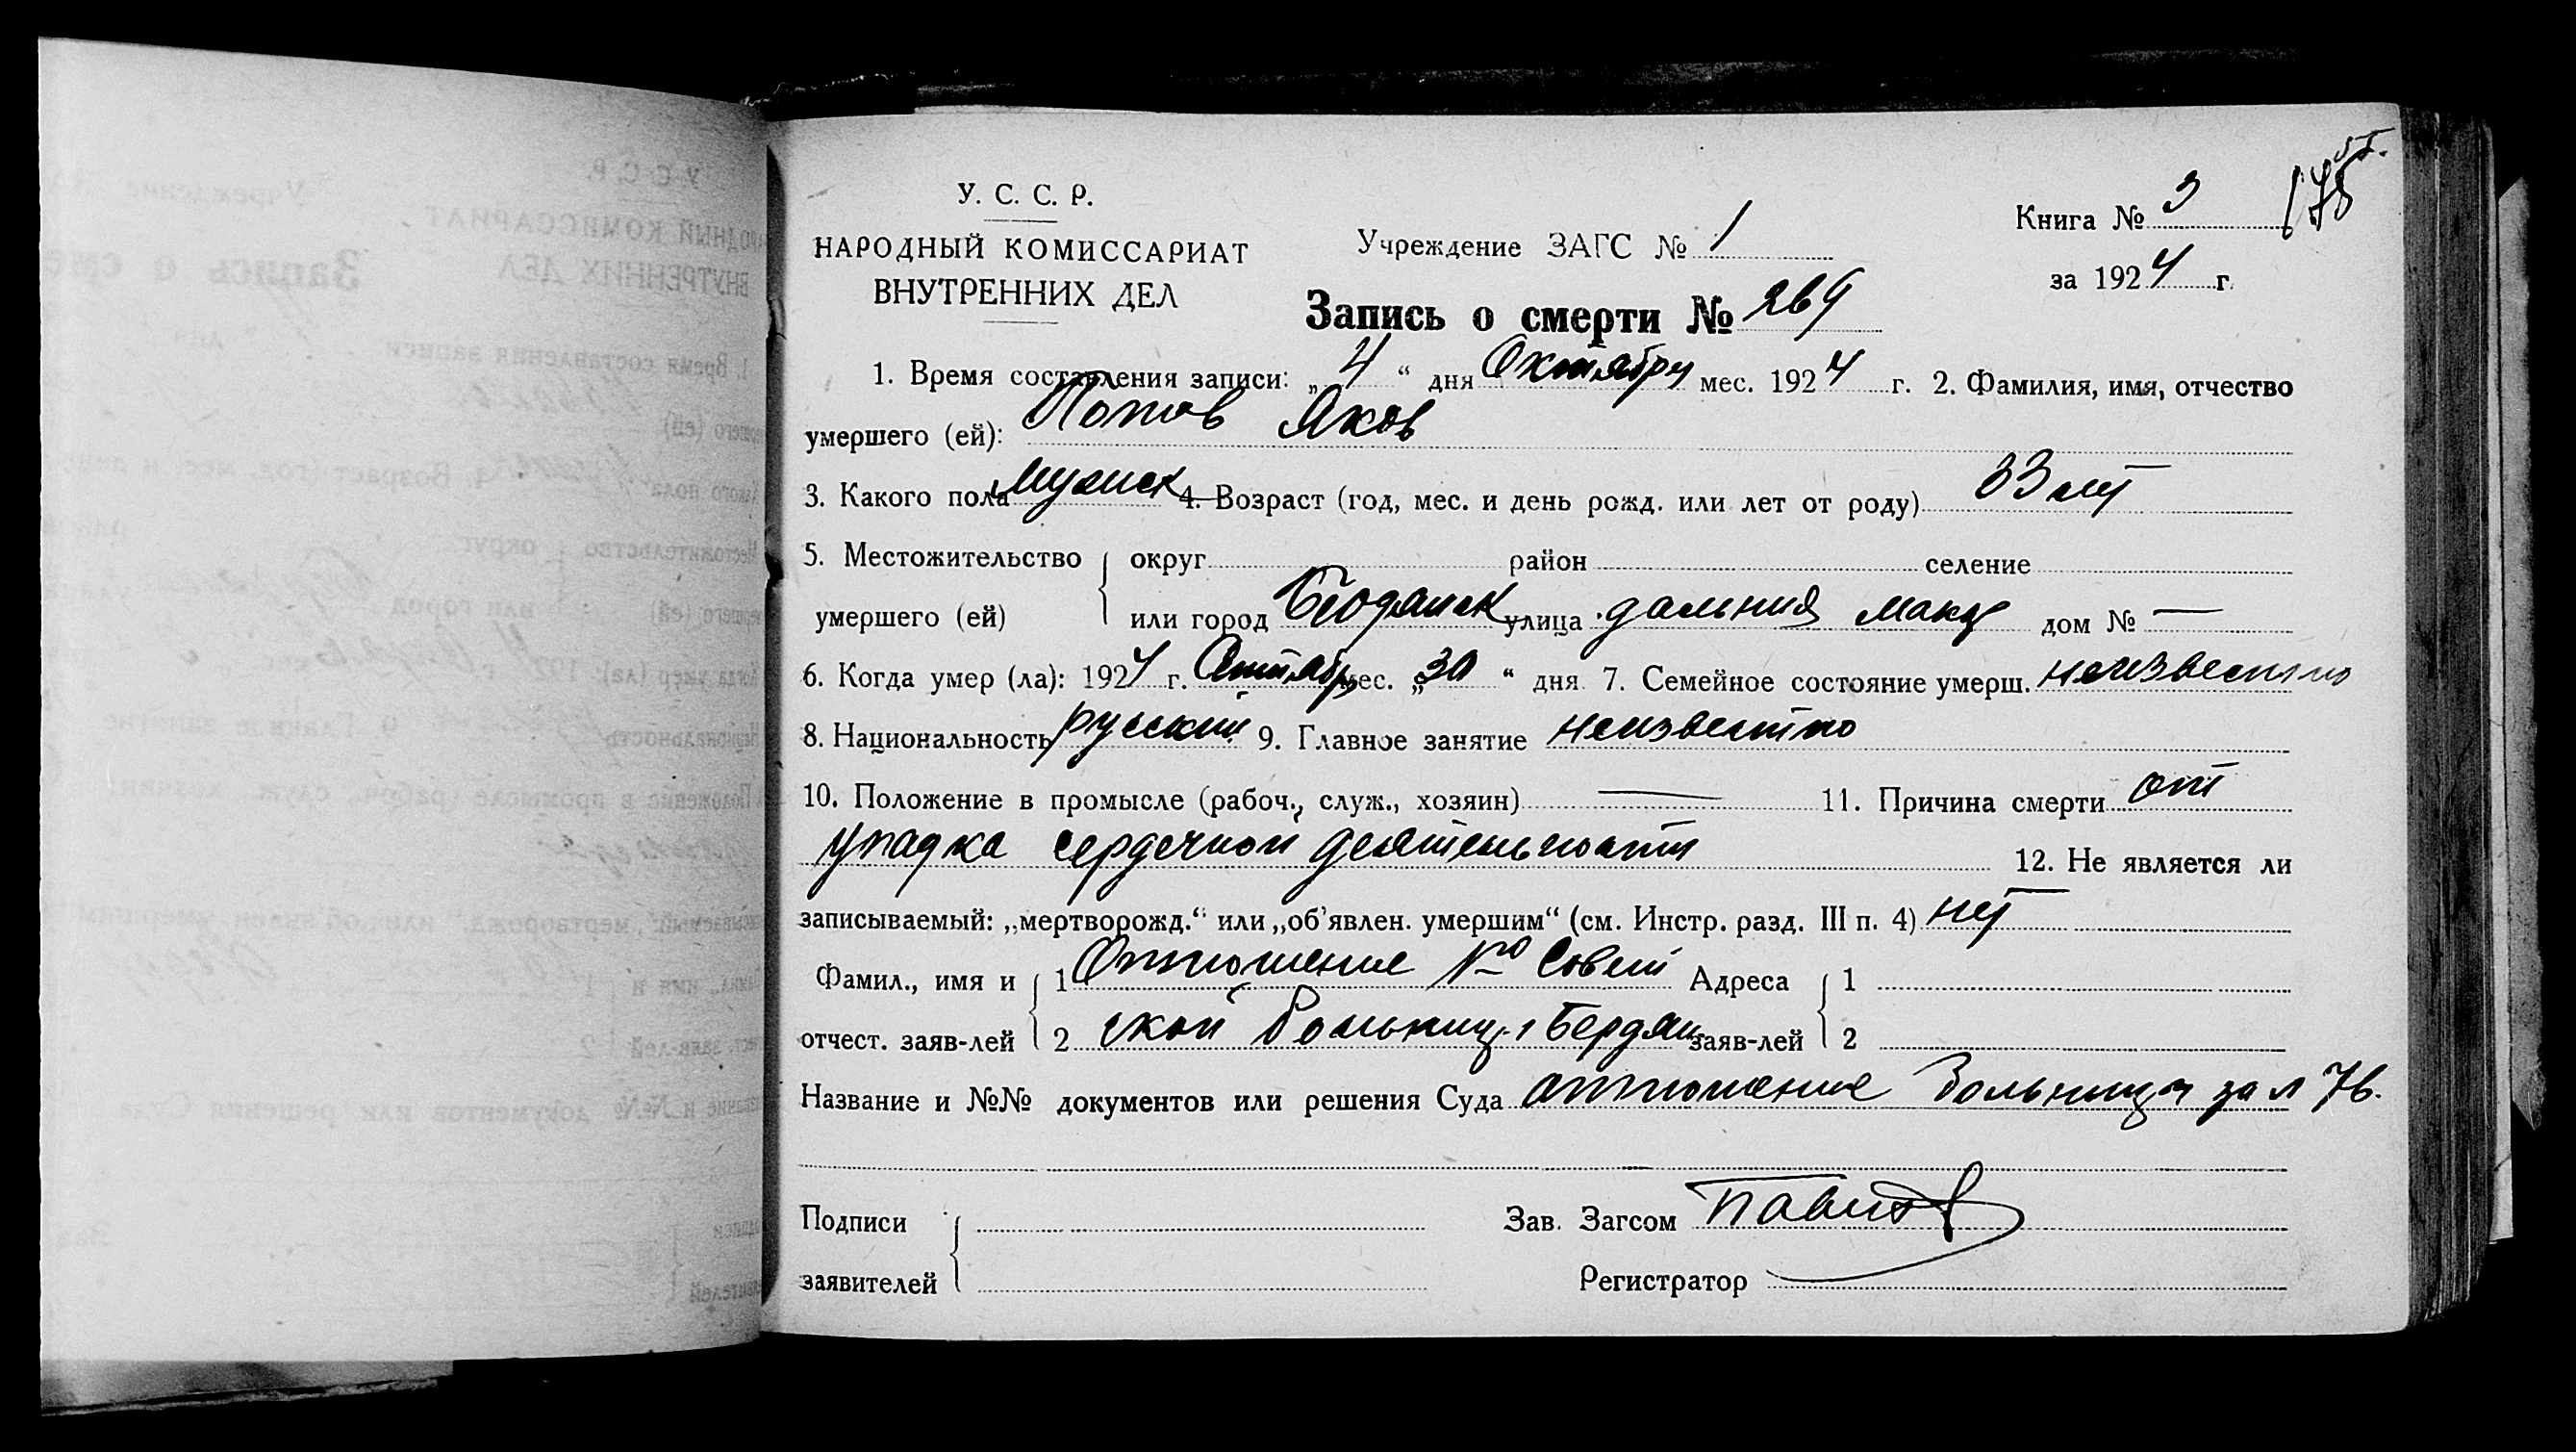 У. С. С. Р.
НАРОДНЫЙ КОМИССАРИАТ
ВНУТРЕННИХ ДЕЛ
Учреждение ЗАГС № 1
Книга № 3
за 1924 г.
Запись о смерти № 269
1. Время составления записи: „4“ дня Октября мес. 1924 г. 2. Фамилия, имя, отчество
умершего (ей): Попов Яков
3. Какого пола мужск 4. Возраст (год, мес. и день рожд. или лет от роду) 33 лет
5. Местожительство округ район селение
умершего (ей) или город улица дальния дом № —
6. Когда умер (ла): 1924 г. мес. „30“ дня 7. Семейное состояние умерш. неизвестно
8. Национальность русский 9. Главное занятие неизвестно
10. Положение в промысле (рабоч., служ., хозяин) — 11. Причина смерти от
упадка сердечной деятельности 12. Не является ли
записываемый: „мертворожд.“ или „об’явлен. умершим“ (см. Инстр. разд. III п. 4) нет
Фамил., имя и 1 Отношение Совет Адреса 1
отчест. заяв-лей 2 ской больниц Бердян заяв-лей 2
Название и №№ документов или решения Суда отношение больницы за
Подписи
заявителей
Зав. Загсом
Регистратор